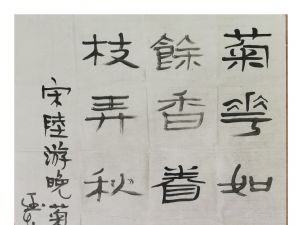 菊華如
餘香眷
枝弄秋
宋陸游晚菊